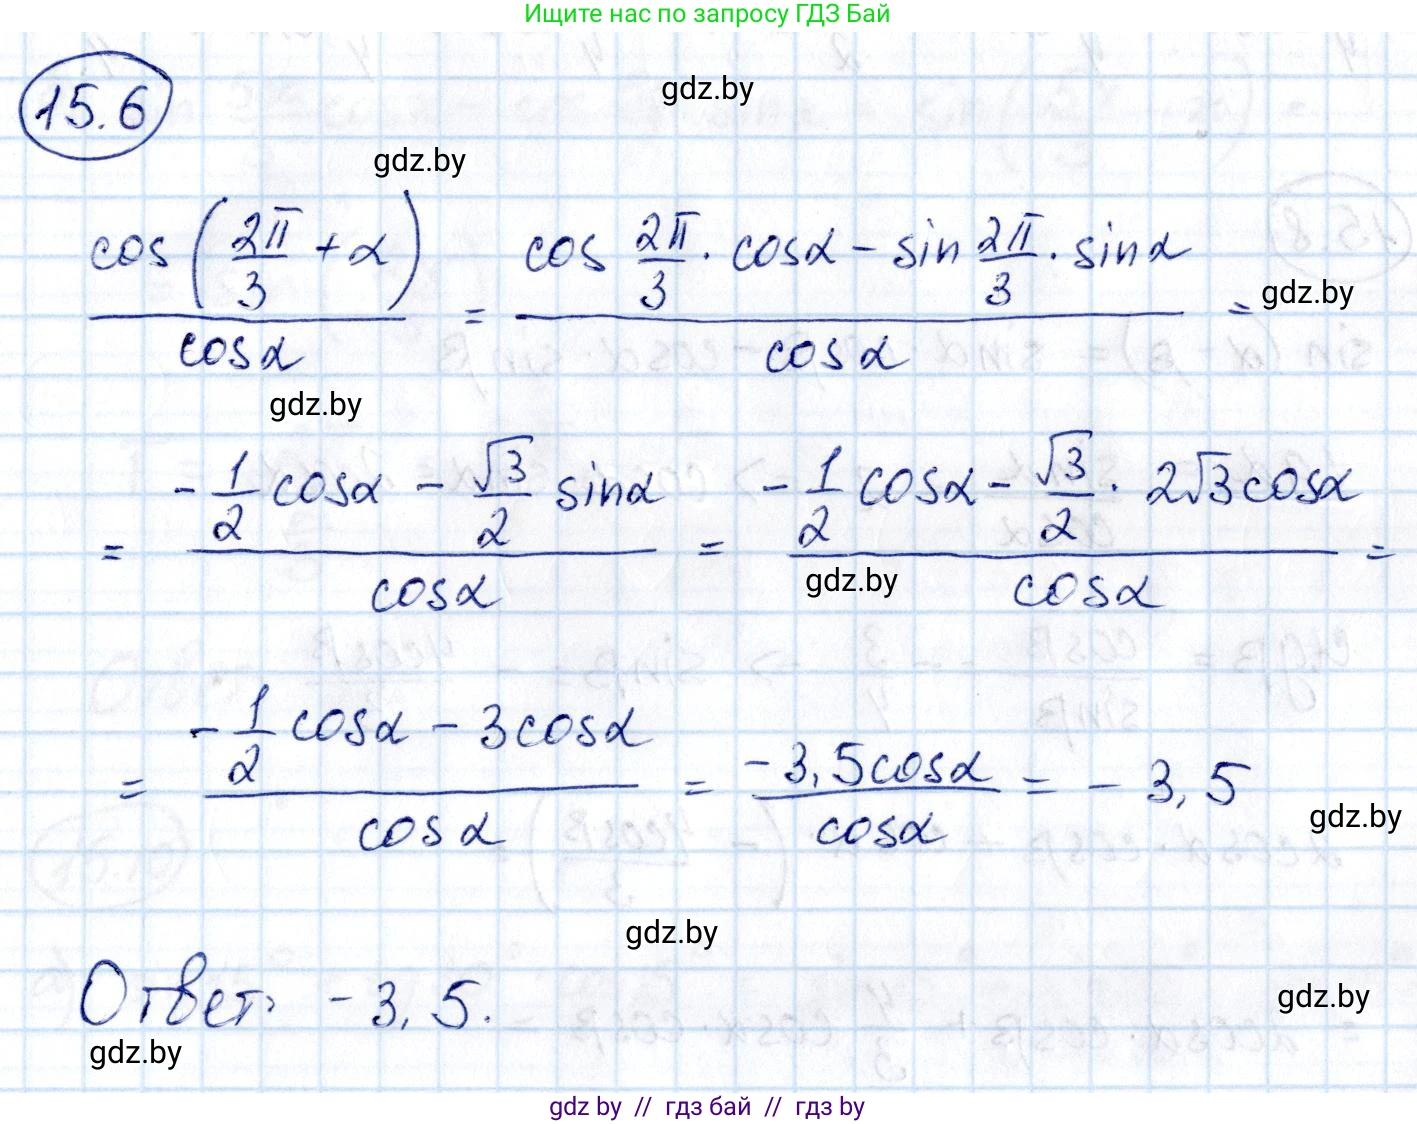 Ищите нас по запросу ГДЗ Бай
gdz.by
15.6
gdz.by
cos(2π/3 + α)/cosα = (cos 2π/3 · cosα - sin 2π/3 · sinα)/cosα =
gdz.by
gdz.by
= (-1/2 cosα - √3/2 sinα)/cosα = (-1/2 cosα - √3/2 · 2√3cosα)/cosα =
gdz.by
= (-1/2 cosα - 3cosα)/cosα = -3,5cosα/cosα = -3,5
gdz.by
gdz.by
Ответ: -3,5.
gdz.by
gdz.by
gdz by // гдз бай // гдз by